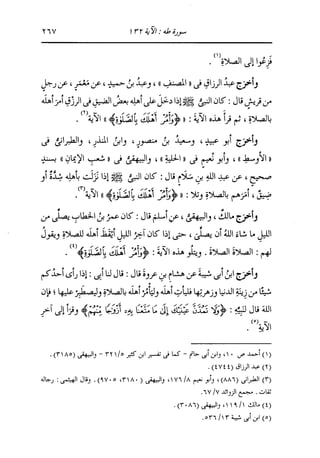 سورة طه : الآية ١٣٢
٢٦٧
فزِعوا إلى الصلاةِ(١).
وأخرج عبدُ الرزاقِ فى «المصنفِ»، وعبدُ بنُ حميدٍ، عن مَعْمَرٍ، عن رجلٍ
من قريشٍ قال : كان النبىُّ ﷺ إذا دخَل على أهلِه بعضُ الضيقِ فى الرزقِ أمَر أهلَه
بالصلاةِ، ثم قرأ هذه الآيةَ : ﴿وَأْمُرْ أَهْلَكَ بِالصَّلَوٰةِ﴾ الآية(٢).
وأخرج أبو عبيدٍ، وسعيدُ بنُ منصورٍ، وابنُ المنذرِ، والطبرانىُّ فى
«الأوسطِ»، وأبو نُعيمٍ فى «الحليةِ»، والبيهقىُّ فى «شعبِ الإيمانِ» بسندٍ
صحيحٍ، عن عبدِ اللهِ بنِ سلَامٍ قال : كان النبىُّ ﷺ إذا نزَلت بأهلِه شدةٌ أو
ضيقٌ، أمَرهم بالصلاةِ وتلا : ﴿وَأْمُرْ أَهْلَكَ بِالصَّلَوٰةِ﴾ الآية(٣).
وأخرج مالكٌ، والبيهقىُّ، عن أسلمَ قال : كان عمرُ بنُ الخطابِ يصلِّى من
الليلِ ما شاء اللهُ أن يصلِّىَ، حتى إذا كان آخرُ الليلِ أيقَظ أهلَه للصلاةِ ويقولُ
لهم : الصلاةَ الصلاةَ. ويتلو هذه الآيةَ : ﴿وَأْمُرْ أَهْلَكَ بِالصَّلَوٰةِ﴾(٤).
وأخرج ابنُ أبى شيبةَ عن هشامِ بنِ عروةَ قال : قال لنا أبى : إذا رأى أحدُكم
شيئًا من زينةِ الدنيا وزهرتِها فليأتِ أهلَه وليأمُرْ أهلَه بالصلاةِ وليصطبِرْ عليها ؛ فإن
اللهَ قال لنبيِّه : ﴿وَلَا تَمُدَّنَّ عَيْنَيْكَ إِلَىٰ مَا مَتَّعْنَا بِهِۦ أَزْوَٰجًا مِّنْهُمْ﴾ وقرأ إلى آخرِ
الآيةِ(٥).
(١) أحمد ص ١٠، وابن أبى حاتم - كما فى تفسير ابن كثير ٣٢١/٥ - والبيهقى (٣١٨٥).
(٢) عبد الرزاق (٤٧٤٤).
(٣) الطبرانى (٨٨٦)، وأبو نعيم ١٧٦/٨، والبيهقى (٣١٨٠، ٩٧٠٥). وقال الهيثمى : رجاله
ثقات. مجمع الزوائد ٦٧/٧.
(٤) مالك ١١٩/١، والبيهقى (٣٠٨٦).
(٥) ابن أبى شيبة ٥٣٦/١٣.